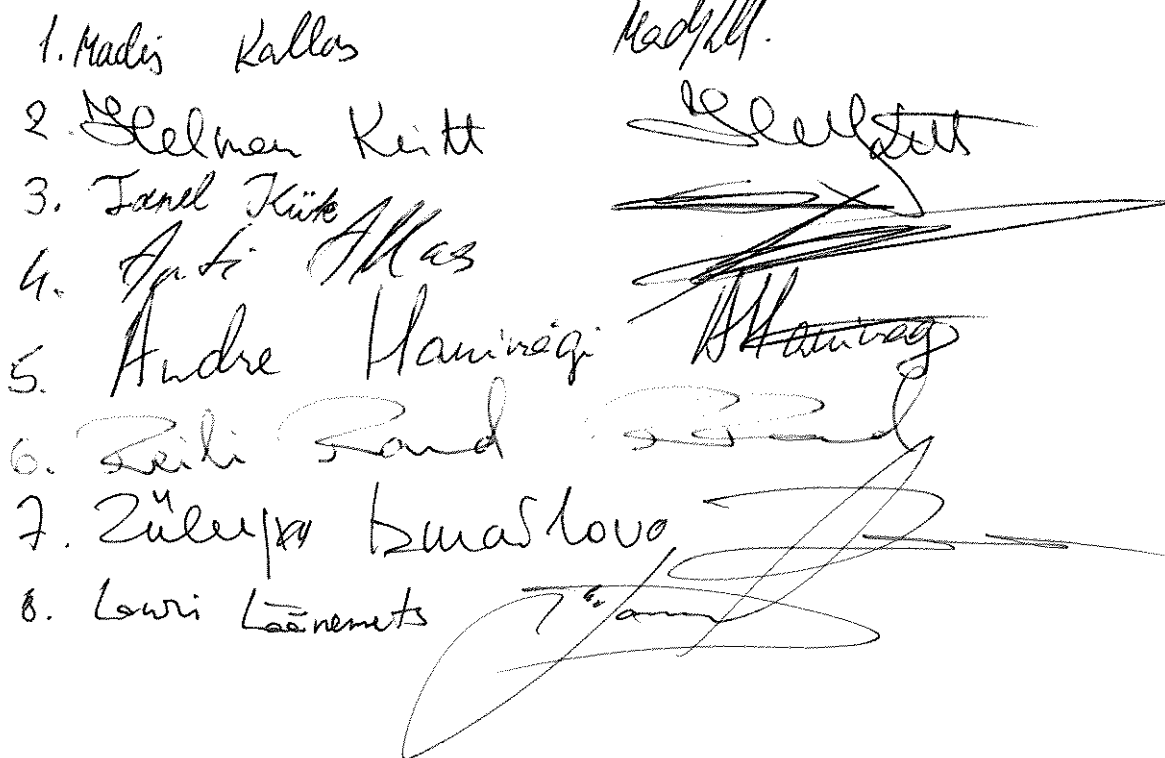 1. Madis Kallas
2. Helmen Kütt
3. Tanel Kiik
4. Anti Allas
5. Andre Hanimägi AHanimägi
6. Reili Rand RRand
7. Züleyxa Izmailova
8. Lauri Läänemets